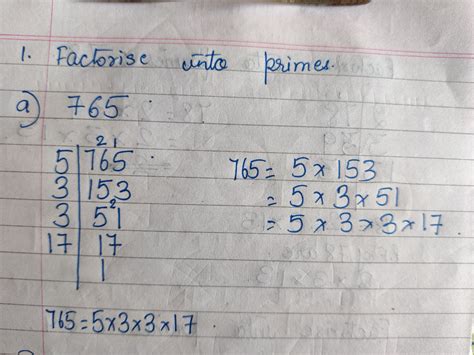 1. Factorise into primes.
a) 765
5 | 765 21
3 | 153
3 | 51 2
17 | 17
1
765 = 5 x 153
= 5 x 3 x 51
= 5 x 3 x 3 x 17
765 = 5x3x3x17